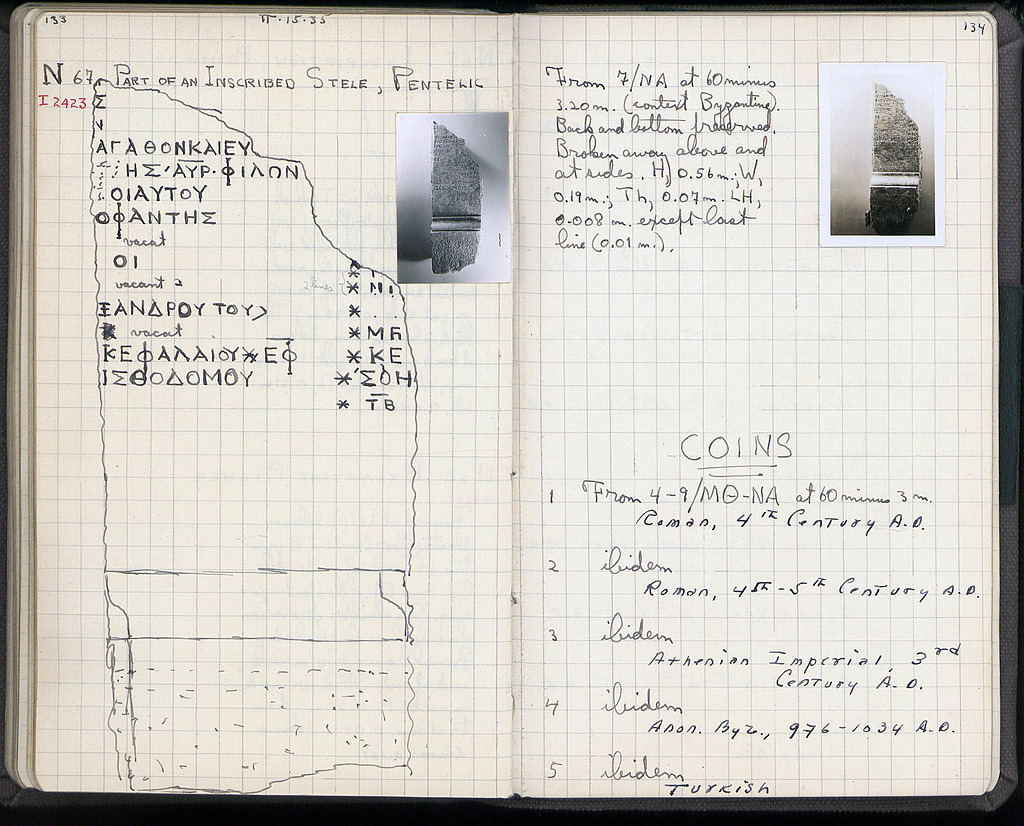 133
II·15·35
N 67 PART OF AN INSCRIBED STELE, PENTELIC
I 2423
Σ
ΑΓΑΘΟΝΚΑΙΕΥ
ΗΣ'ΑΥΡ·ΦΙΛΩΝ
ΟΙΑΥΤΟΥ
ΟΦΑΝΤΗΣ
vacat
ΟΙ
vacant 2
2 lines
ΞΑΝΔΡΟΥ ΤΟΥ>
* vacat
* ΜΗ
ΚΕΦΑΛΑΙΟΥ*ΕΦ
* ΚΕ
ΙΣΘΟΔΟΜΟΥ
*'ΣΟΗ
* ΤΒ
134
From 7/ΝΑ at 60 minus
3.20 m. (context Byzantine).
Back and bottom preserved.
Broken away above and
at sides. H, 0.56m.; W,
0.19m.; Th, 0.07m. LH,
0.008 m. except last
line (0.01 m.).
COINS
1 From 4-9/ΜΘ-ΝΑ at 60 minus 3 m.
Roman, 4th Century A.D.
2 ibidem
Roman, 4th-5th Century A.D.
3 ibidem
Athenian Imperial, 3rd
Century A.D.
4 ibidem
Anon. Byz., 976-1034 A.D.
5 ibidem
Turkish